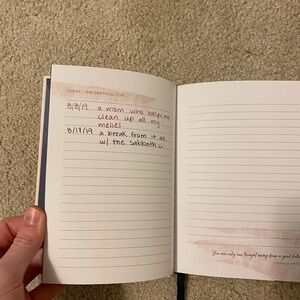 TODAY I AM GRATEFUL FOR...
8/8/19 a mom who helps me
clean up all my
mess!
8/17/19 a break from it all
w/ the Sabbath
You are only one thought away from a good